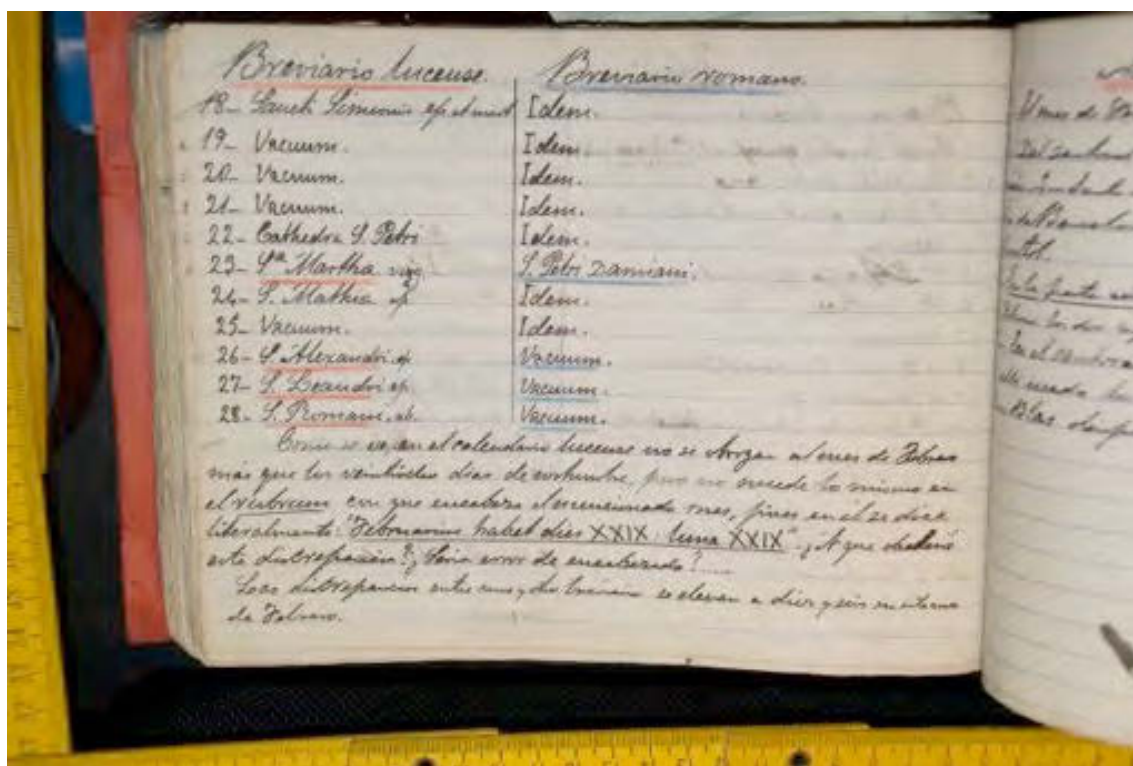 Breviario lucense. Breviario romano.
18- Sancti Simeonis ep. et mart Idem.
19- Vacuum. Idem.
20- Vacuum. Idem.
21- Vacuum. Idem.
22- Cathedra S. Petri Idem.
23- Sª Martha virg. S. Petri Damiani.
24- S. Mathie ap Idem.
25- Vacuum. Idem.
26- S. Alexandri ep. Vacuum.
27- S. Leandri ep. Vacuum.
28- S. Romani, ab. Vacuum.
Como se ve, en el calendario lucense no se al mes de Febrero
más que los veintiocho dias de costumbre, pero no sucede lo mismo en
el rubrum con que encabeza el mencionado mes, pues en el se dice
literalmente: "Februarius habet dies XXIX luna XXIX". ¿A que obedece
esta discrepancia? ¿Seria error de encabezado?.....
discrepancias entre uno y otro se elevan a diez y seis en
de Febrero.